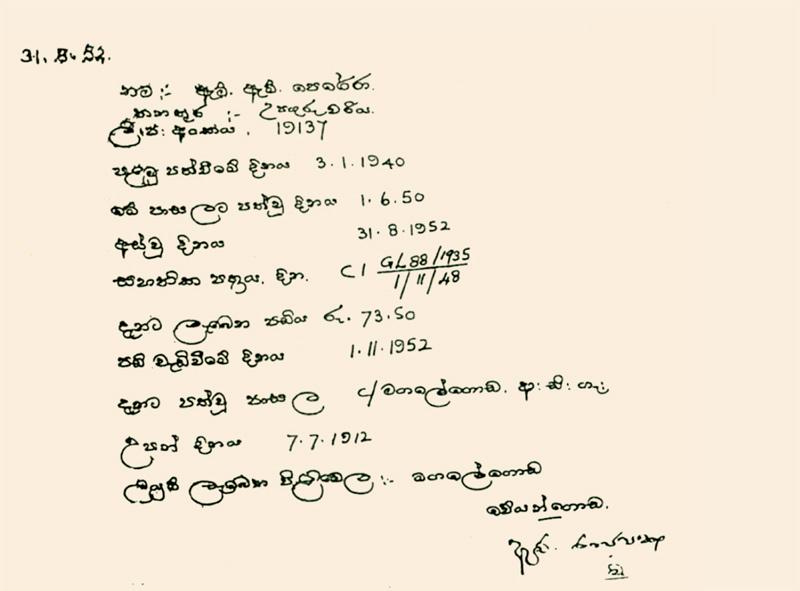 31. 8. 52.
නම :- ඇම්. ඇච්. පෙරේරා.
තනතුර :- උපගුරුවරිය.
ලි: ප: අංකය. 19137
පළමු පත්වීමේ දිනය 3.1.1940
මේ පාසලට පත්වූ දිනය 1.6.50
අස්වූ දිනය 31.8.1952
සහතික පත්‍රය, දින. C1 GL88/1935
1/11/48
දැනට ලැබෙන පඩිය රු. 73.50
පඩි වැඩිවීමේ දිනය 1.11.1952
දැනට පත්වූ පාසල C/ මගලේගොඩ. ආ: සි: ගැ:
උපන් දිනය 7.7.1912
ලියුම් ලැබෙන පිළිවෙල :- මගලේගොඩ
වේයන්ගොඩ.